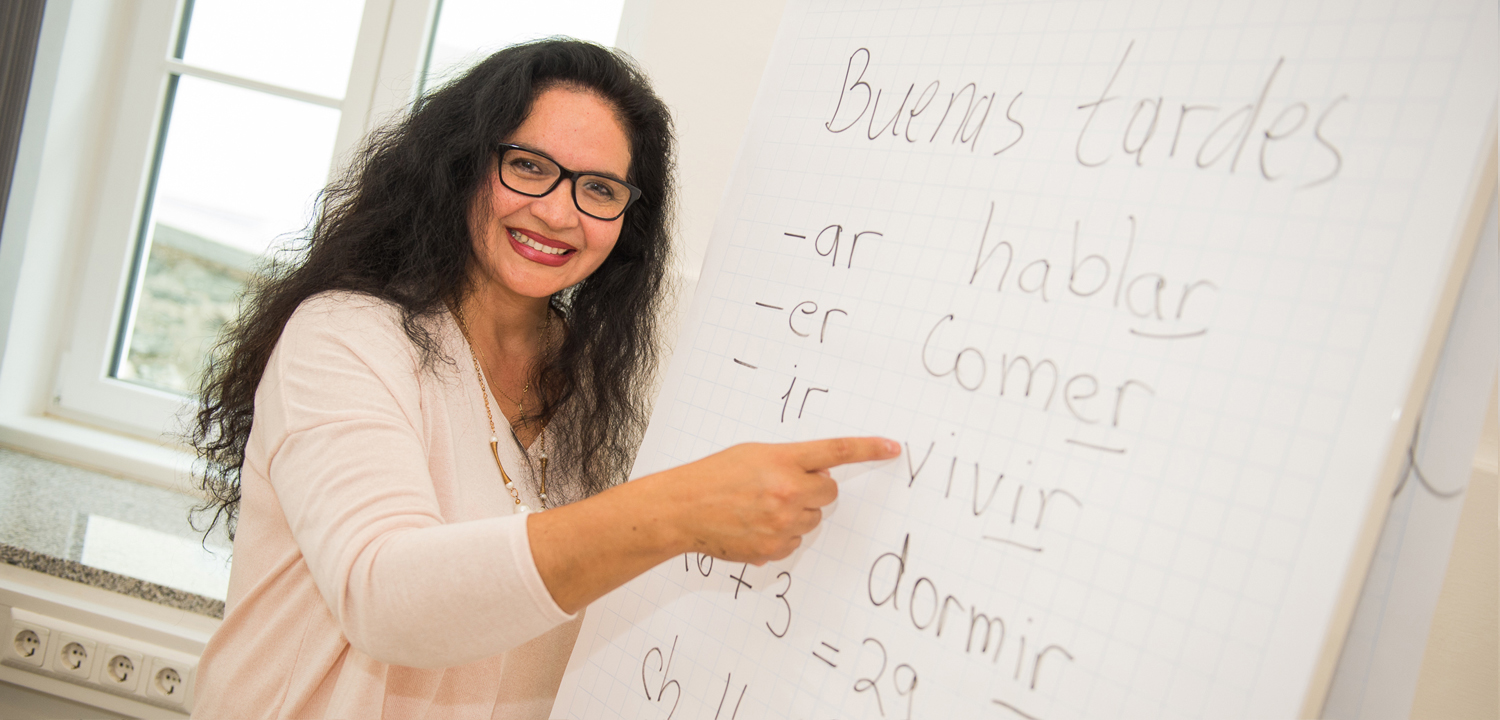 Buenas tardes
-ar hablar
-er comer
-ir vivir
dormir
16 + 3
= 29
ch ll